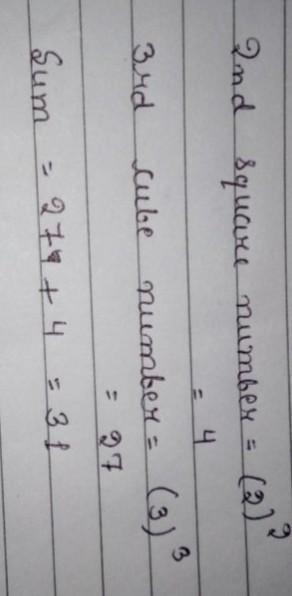 2nd square number = (2)²
= 4
3rd cube number = (3)³
= 27
Sum = 27 + 4 = 31